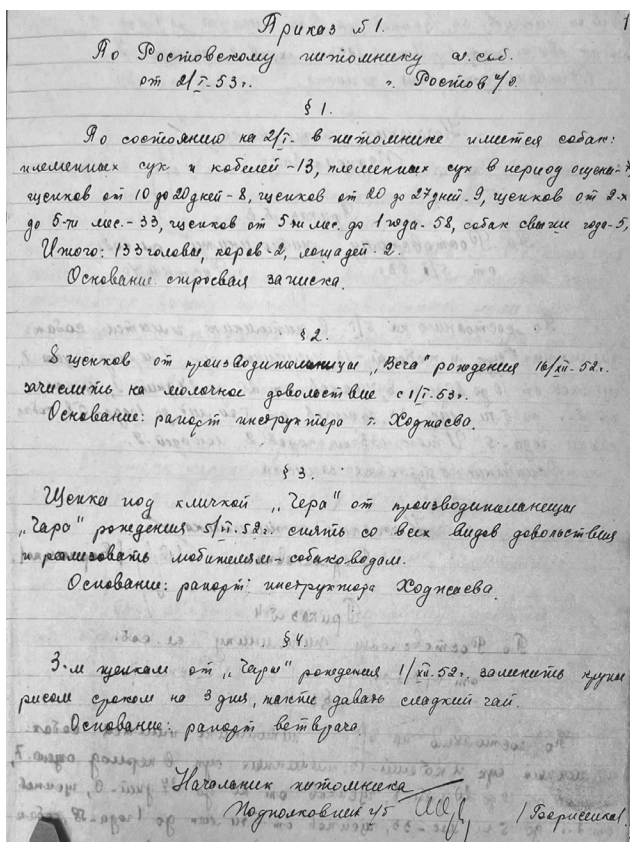 1
Приказ № 1.
По Ростовскому питомнику сл. соб.
от 2/I-53 г. г. Ростов н/д.
§ 1.
По состоянию на 2/I- в питомнике имеется собак:
племенных сук и кобелей-13, племенных сук в период ощена-7
щенков от 10 до 20 дней-8, щенков от 20 до 27 дней-9, щенков от 2-х
до 5-ти мес.-33, щенков от 5ти мес. до 1 года-58, собак свыше года-5,
Итого: 133 головы, коров-2, лошадей-2.
Основание: строевая записка.
§ 2.
8 щенков от производительницы „Вега" рождения 16/XII-52 г.
зачислить на молочное довольствие с 1/I-53 г.
Основание: рапорт инструктора т. Ходжаева.
§ 3.
Щенка под кличкой „Чера" от производительницы
„Чара" рождения 5/VI-52 г. снять со всех видов довольствия
и реализовать любителям-собаководам.
Основание: рапорт инструктора Ходжаева.
§ 4
3-м щенкам от „Чары" рождения 1/XII-52 г. заменить крупы
рисом сроком на 3 дня, также давать сладкий чай.
Основание: рапорт ветврача.
Начальник питомника
Подполковник